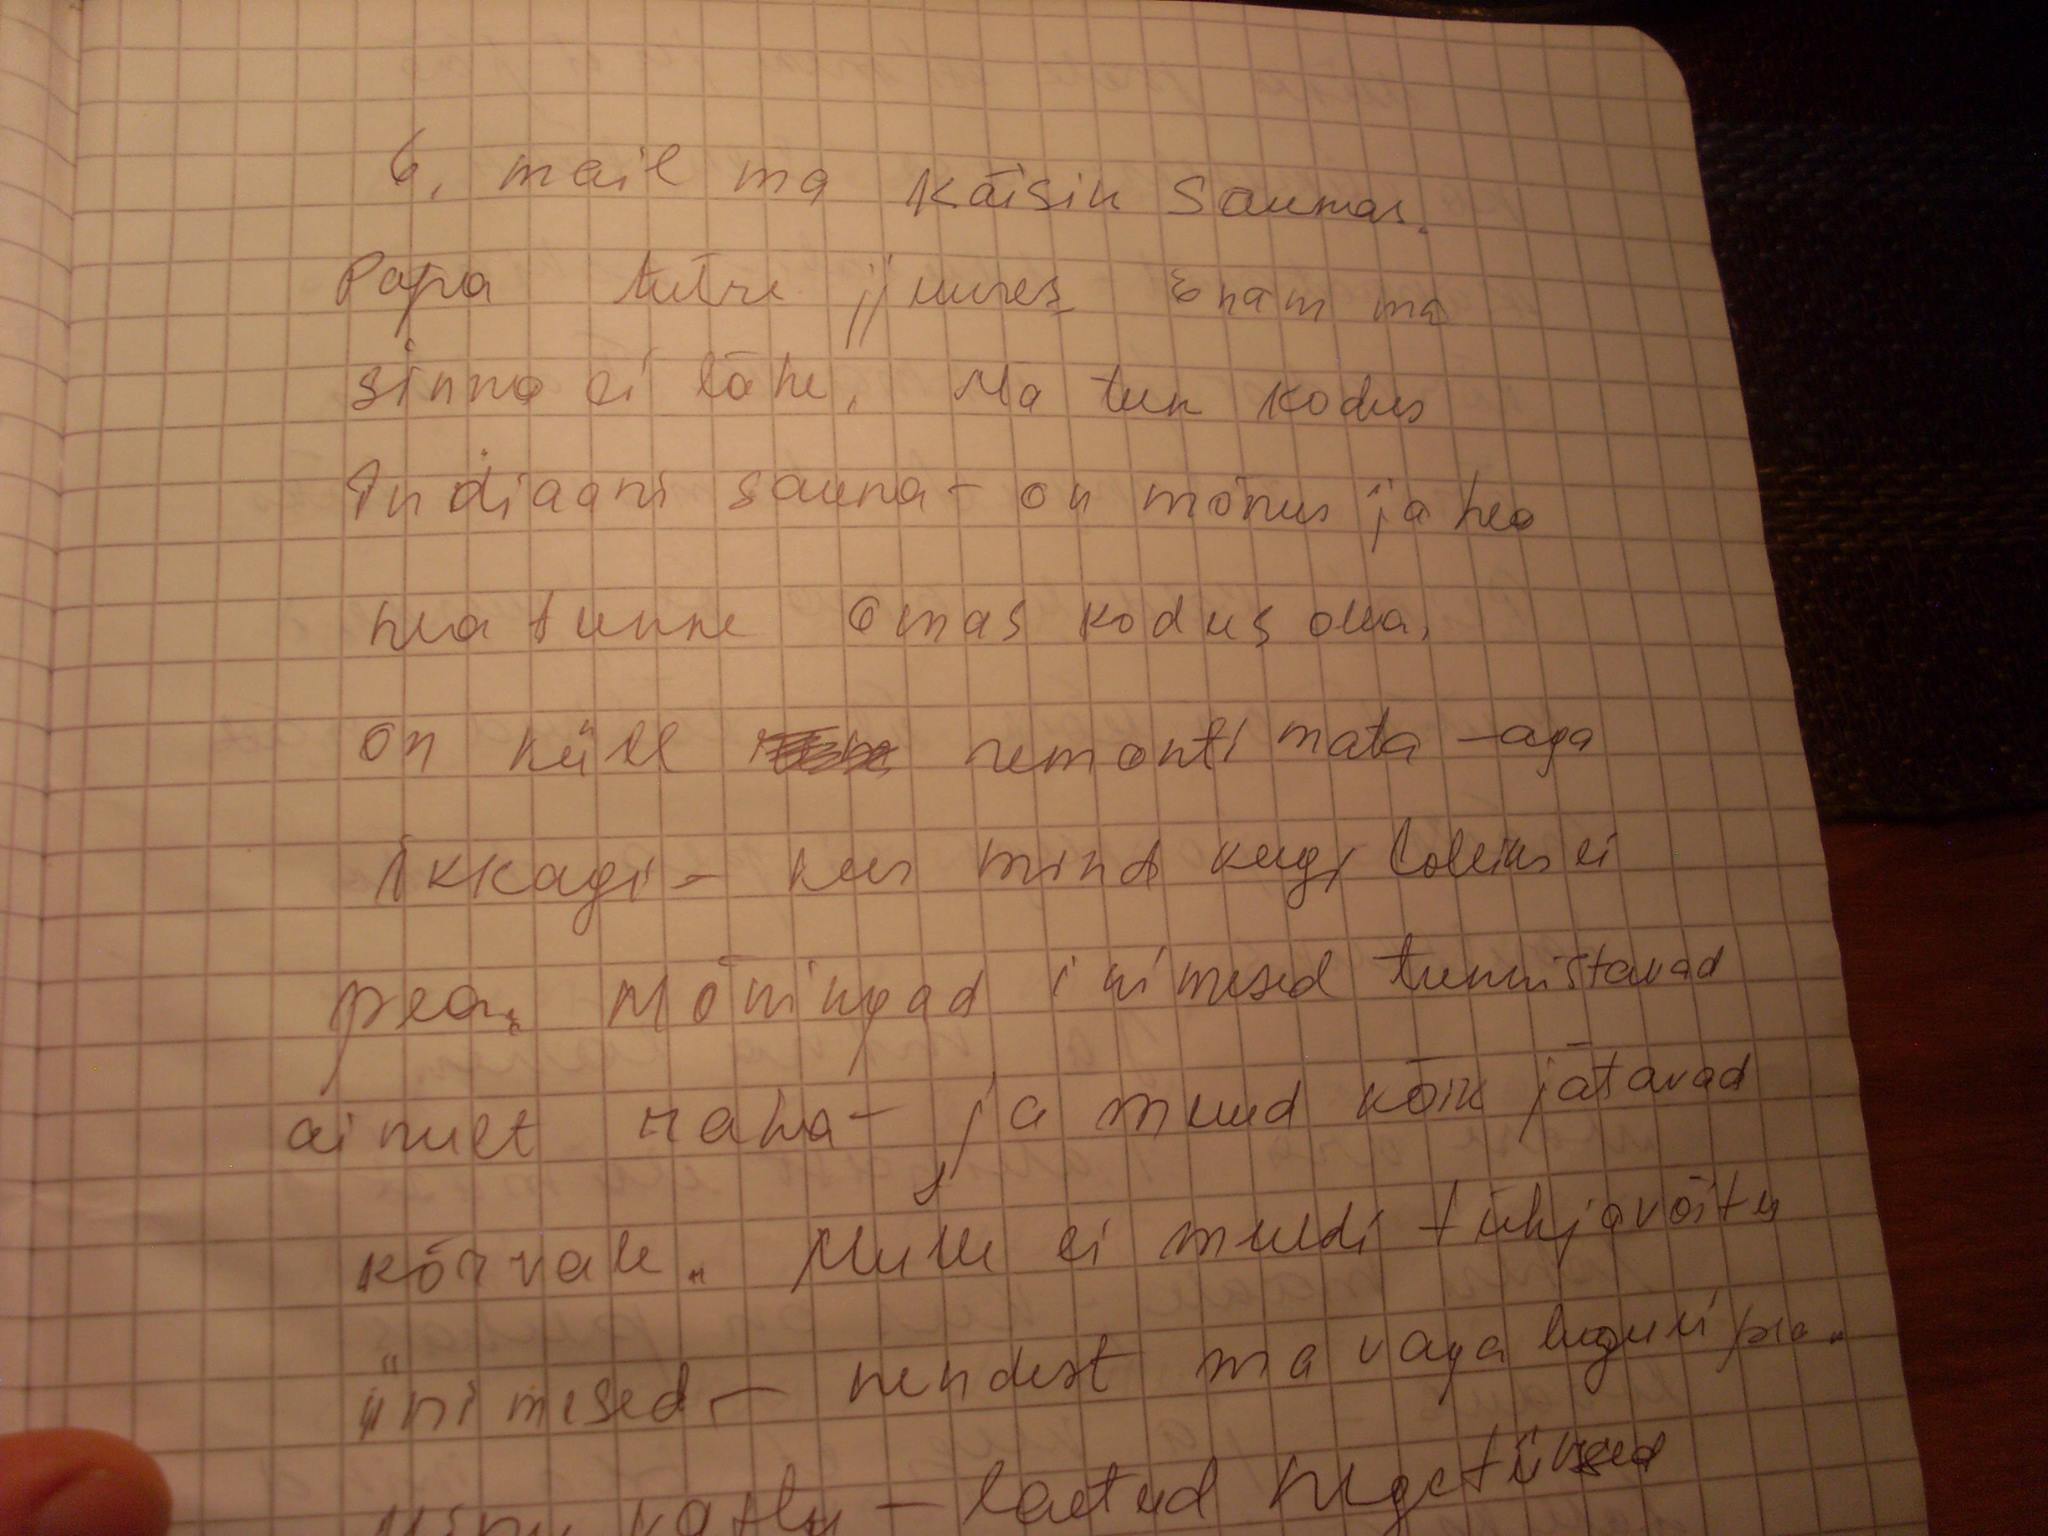 6. mail ma käisin saunas.
Papa tütre juures Enam ma
sinna ei lähe. Ma tun kodus
Indiaani sauna - on mõnus ja hea
hea tunne omas kodus olla.
on küll remonti mata - aga
ikkagi - kus mind keegi tolleins ei
pea. Mõningad inimesed tunnistavad
ainult raha - ja muud kõik jätavad
kõrvale. Mulle ei meeldi tühjavõitu
inimesed - nendest ma väga lugu ei pea.
laetud negatiivsed